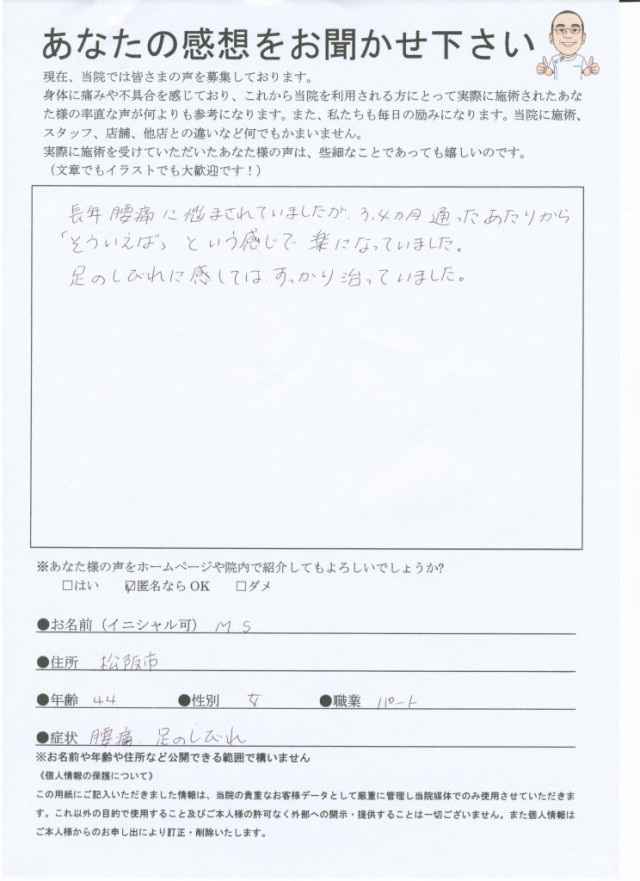 あなたの感想をお聞かせ下さい
現在、当院では皆さまの声を募集しております。
身体に痛みや不具合を感じており、これから当院を利用される方にとって実際に施術されたあな
た様の率直な声が何よりも参考になります。また、私たちも毎日の励みになります。当院に施術、
スタッフ、店舗、他店との違いなど何でもかまいません。
実際に施術を受けていただいたあなた様の声は、些細なことであっても嬉しいのです。
（文章でもイラストでも大歓迎です！）
長年 腰痛に悩まされていましたが、3,4ヵ月 通ったあたりから
「そういえば」 という感じで 楽になっていました。
足のしびれに感しては、すっかり治っていました。
※あなた様の声をホームページや院内で紹介してもよろしいでしょうか?
□はい ☑匿名なら OK □ダメ
●お名前（イニシャル可） M S
●住所 松阪市
●年齢 44 ●性別 女 ●職業 パート
●症状 腰痛、足のしびれ
※お名前や年齢や住所など公開できる範囲で構いません
《個人情報の保護について》
この用紙にご記入いただきました情報は、当院の貴重なお客様データとして厳重に管理し当院媒体でのみ使用させていただきま
す。これ以外の目的で使用すること及びご本人様の許可なく外部への開示・提供することは一切ございません。また個人情報は
ご本人様からのお申し出により訂正・削除いたします。